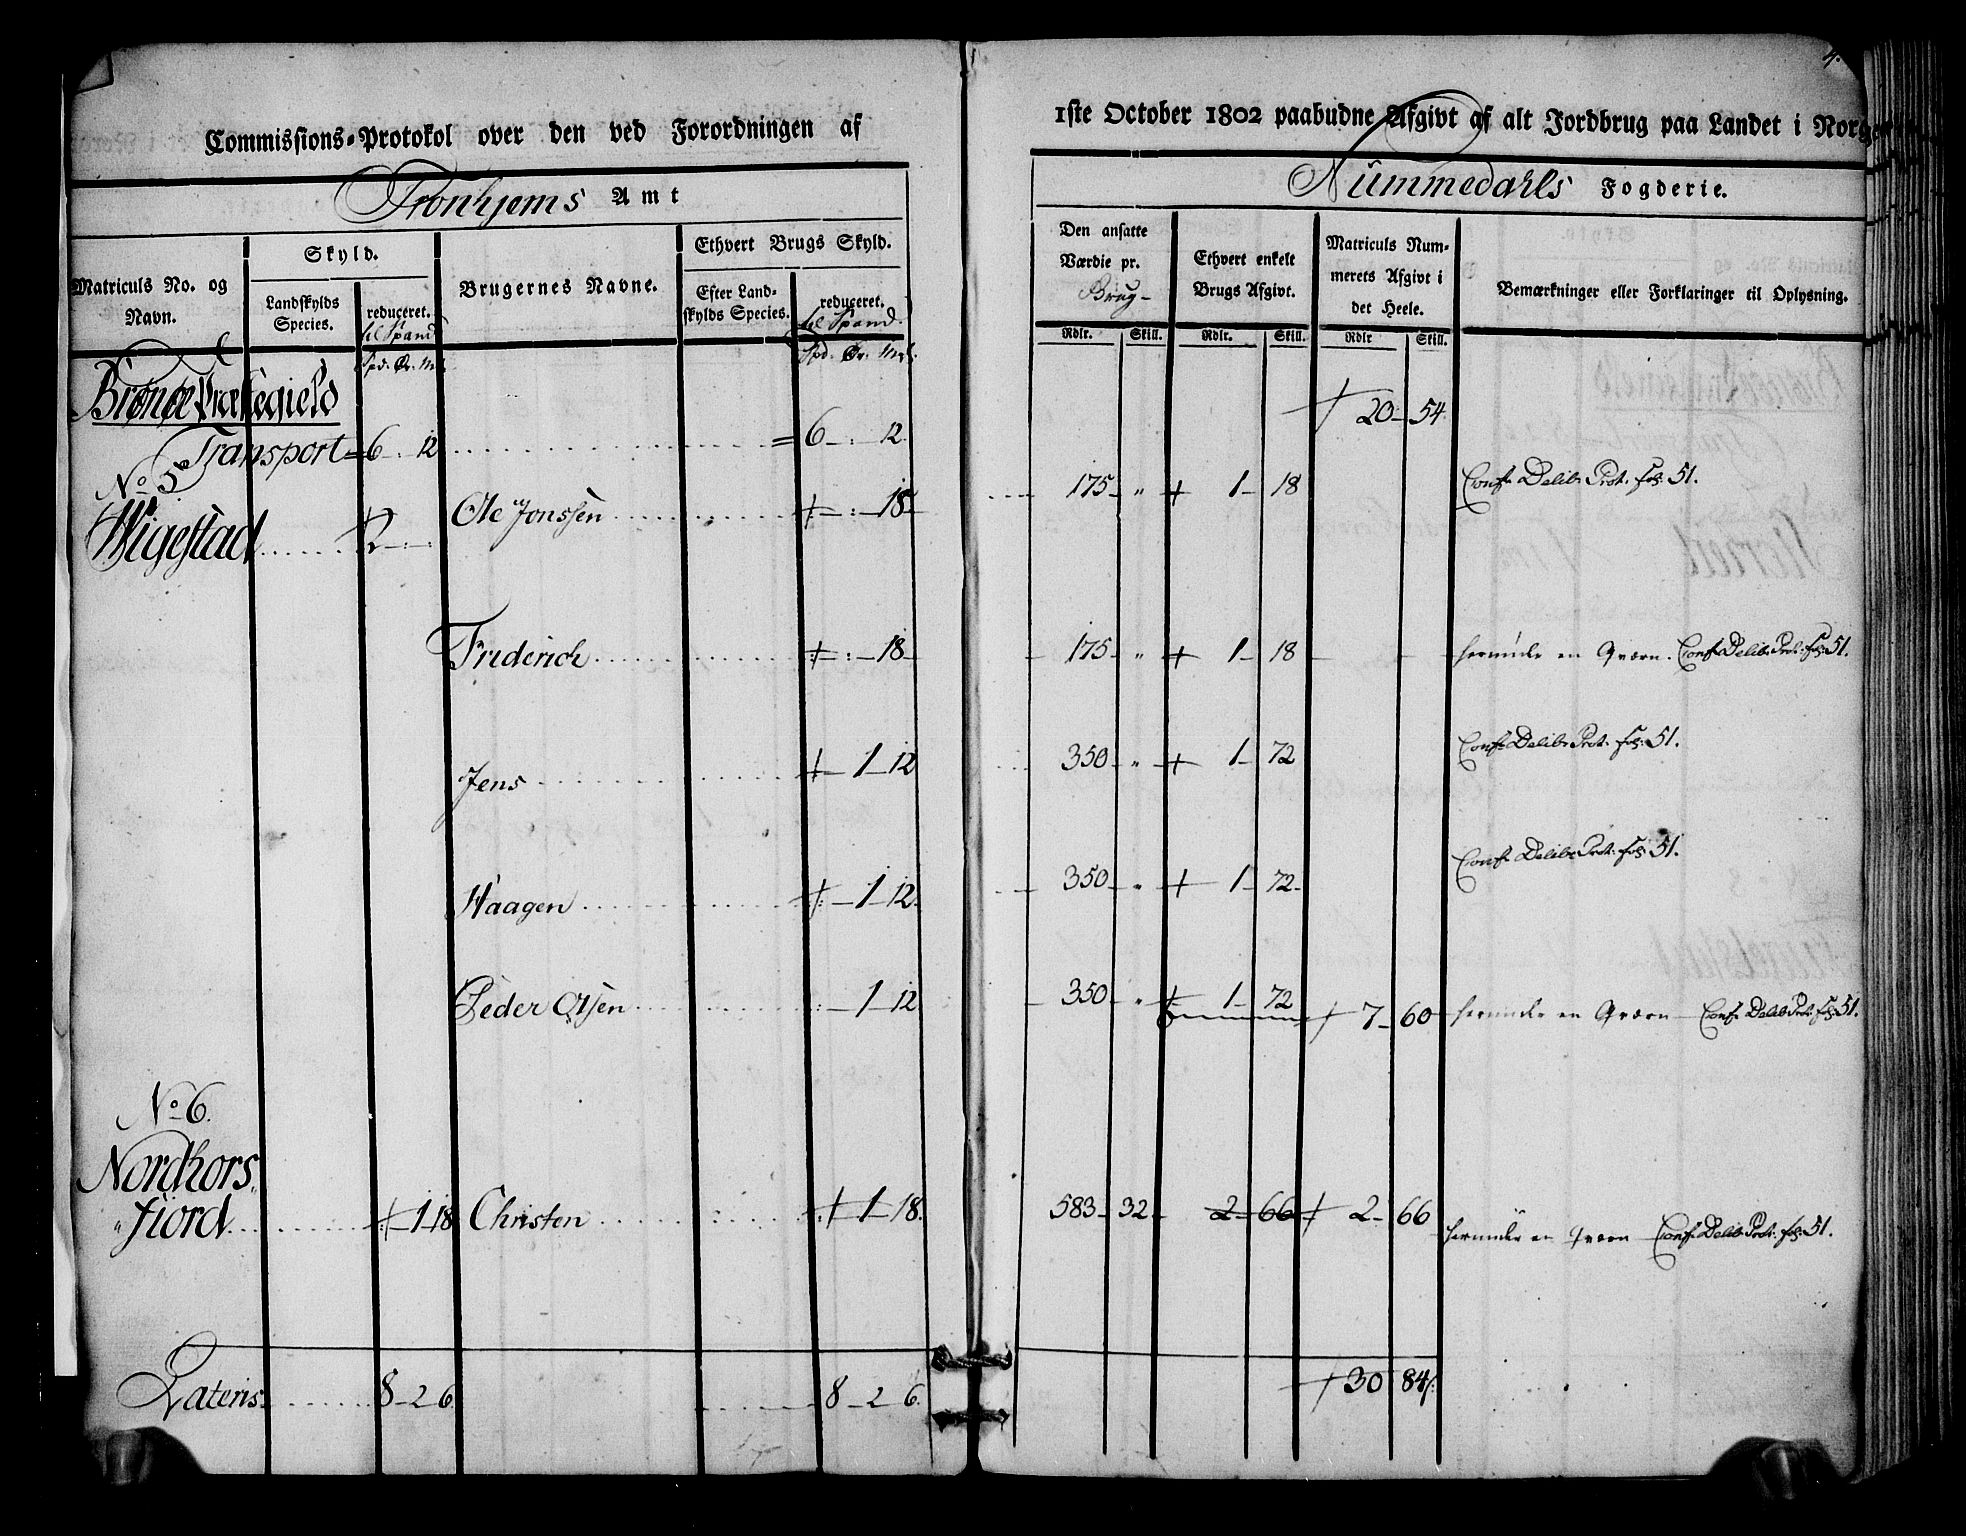 4.
Commissions-Protokol over den ved Forordningen af 1ste October 1802 paabudne Afgivt af alt Jordbrug paa Landet i Norge
Tronhjems Amt
Nummedahls Fogderie.
Matriculs No. og Navn.
Skyld.
Landskylds Species.
reduceret. til Spand
Spd. Ør. M
Brugernes Navne.
Ethvert Brugs Skyld.
Efter Landskylds Species.
reduceret. til Spand.
Spd. Ør. Mrk.
Den ansatte Værdie pr. Brug-
Rdlr. Skill.
Ethvert enkelt Brugs Afgivt.
Rdlr. Skill.
Matriculs Nummerets Afgivt i det Heele.
Rdlr Skill.
Bemærkninger eller Forklaringer til Oplysning.
Præstegield
Transport = 6 - : 12 = 6 - : - 12. 20 - 54.
No 5
Wigestad 2 - : - : Ole Jonssen - : - 18 - 175 - " 1 - 18 Conf. Delib. Prot. fol. 51.
Friderich - : - 18 - 175 - " 1 - 18 herunder en Qværn. Conf. Delib. Prot. fol. 51.
Jens - 1 - 12 350 - " 1 - 72 Conf. Delib. Prot. fol. 51.
Haagen - 1 - 12. 350 - " 1 - 72. Conf. Delib. Prot. fol. 51.
Peder Olsen : - 1 - 12 350 - " 1 - 72 7 - 60 herunder en Qværn - Conf. Delib. Prot. fol. 51.
No 6.
Nordhors-
fiord. - 1 - 18 Christen - 1 - 18. 583 - 32 - 2 - 66 2 - 66 herunder en Qværn - Conf. Delib. Prot. fol. 51.
Lateris. 8 - 2 6. 8 - 2 6. 30 84